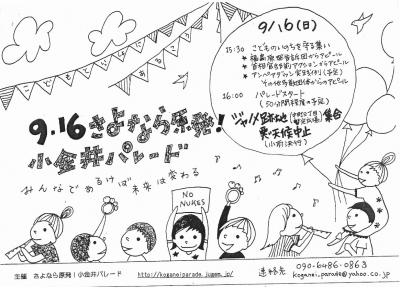 こどもといっしょにあるこう
9/16(日)
15:30 こどものいのちを守る集い
★福島原発告訴団からアピール
★首相官邸前アクションからアピール
その他参加団体からのアピール
16:00 パレードスタート
(50分間程度の予定)
ジャノメ跡地 集合
荒天候中止
(小雨決行)
9.16 さよなら原発!
小金井パレード
みんなであるけば 未来は変わる
NO
NUKES
主催 さよなら原発!小金井パレード
http://koganeiparade.jugem.jp/
連絡先 090-6486-0863
koganei.parade@yahoo.co.jp